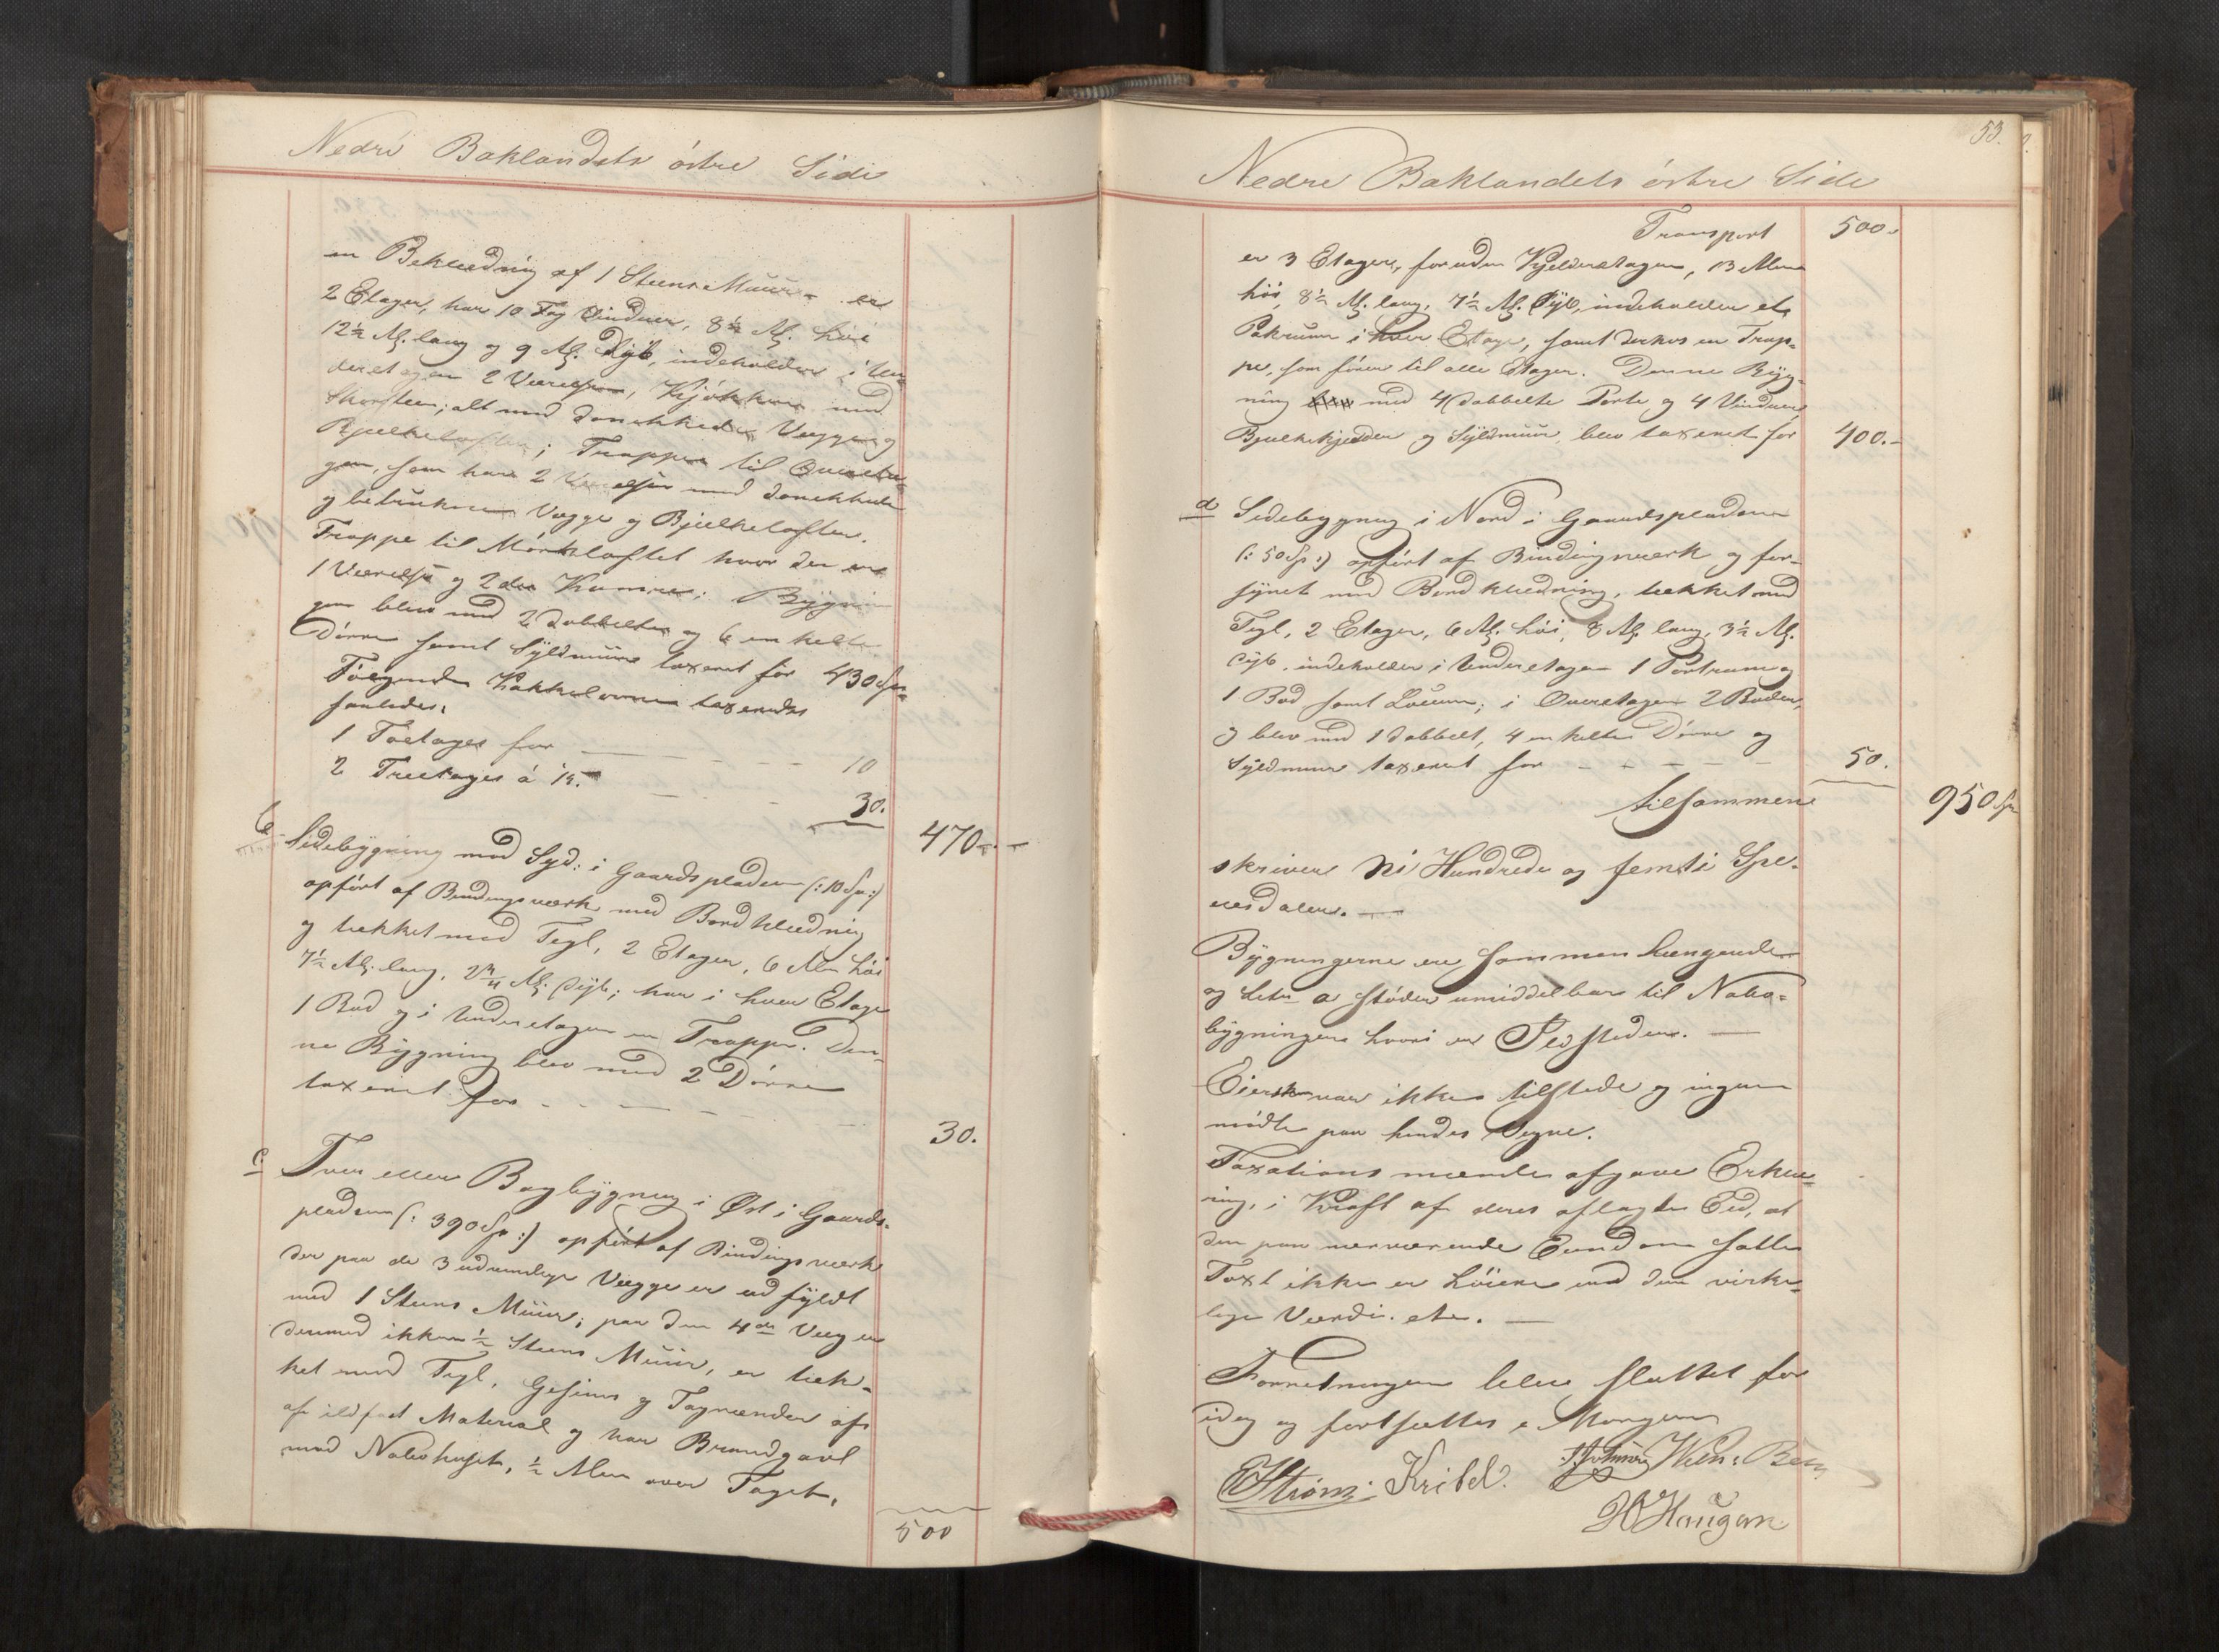 Nedre Baklandets östre Side
en Beklædning af 1 Steens Muur er
2 Etager, har 10 Fag Vinduer, 8½ Al. höi
12½ Al. lang og 9 Al. dyb, indeholder i Un-
deretagen 2 Værelser, Kjökken med
Skorsteen; alt med Vægge og
Bjelkelofter; Trappe til Overeta-
gen, som har 2 Værelser med
og betrukne Vægge og Bjelkelofter.
Trappe til Mörkloftet hvor der er
1 Værelse og 2de Kamre; Bygnin
gen blev med 2 dobbelte og 6 enkelte
Dörre samt Syldmuur taxeret for 430 Sp.
Fölgende Kakkelovne taxeredes
saaledes.
1 Toetages for - - - 10
2 Treetages á 15. - - - 30.
470. -
b. Sidebygning mod Syd i Gaardspladsen (: 10 Sp :)
opfört af Bindingsværk med Bordklædning
og tækket med Tegl, 2 Etager, 6 Alen höi
7½ Al. lang, 2¾ Al. dyb; har i hver Etage
1 Bod og i Underetagen en Trappe. Den-
ne Bygning blev med 2 Dörre
taxeret for - - - -
30.
c. Tver eller Bagbygning i Öst i Gaards-
pladsen (: 390 Sp :) opfört af Bindingsværk
der paa de 3 udvendige Vægge er udfyldt
med 1 Steens Muur; paa den 4de Væg er
derimod ikkun ½ Steens Muur, er tæk-
ket med Tegl, Gesims og Tagrender af
af ildfast Material og har Brandgavl
mod Nabohuset, ½ Alen over Taget,
500
53.
Nedre Baklandets östre Side
Transport 500.
er 3 Etager, foruden Kjelderetagen, 13 Alen
höi, 8½ Al. lang, 7½ Al. dyb, indeholder et
Pakruum i hver Etage, samt derhos en Trap-
pe, som förer til alle Etager. Denne Byg-
ning med 4 dobbelte Porte og 4 Vinduer
Bjelkekjelder og Syldmuur, blev taxeret for 400. -
d Sidebygning i Nord i Gaardspladsen
(: 50 Sp :) opfört af Bindingsværk og for-
synet med Bordklædning, tækket med
Tegl, 2 Etager, 6 Al. höi, 8 Al. lang, 3½ Al.
dyb, indeholder i Underetagen 1 Portrum og
1 Bod samt Locum; i Overetagen 2 Boder,
og blev med 1 dobbelt, 4 enkelte Dörre og
Syldmuur taxeret for - - - - - 50.
tilsammen 950 Sp
skriver Ni Hundrede og femti Spe-
ciesdaler. —
Bygningerne ere sammenhængende
og Litr a stöder umiddelbar til Nabo-
bygningen hvori er Ildsteder. —
Eiersken var ikke tilstede og ingen
mödte paa hendes Vegne.
Taxationsmændene afgave Erklæ-
ring, i Kraft af deres aflagte Eed, at
den paa nærværende Eiendom satte
Taxt ikke er höiere end den virke-
lige Værdi. etc. —
Forretningen blev sluttet for
idag og fortsættes i Morgen
EStröm. Kribel.
HHaugan